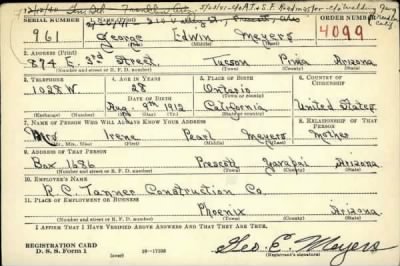 SERIAL NUMBER 1. NAME (Print) ORDER NUMBER
961 George Edwin Meyers 4099
(First) (Middle) (Last)
2. ADDRESS (Print)
874 E. 3rd Street Tucson Pima Arizona
(Number and street or R. F. D. number) (Town) (County) (State)
3. TELEPHONE 4. AGE IN YEARS 5. PLACE OF BIRTH 6. COUNTRY OF CITIZENSHIP
1028W 28 Ontario
DATE OF BIRTH (Town or county)
Aug. 9th 1912 California United States
(Exchange) (No.) (Mo.) (Day) (Yr.) (State or country)
7. NAME OF PERSON WHO WILL ALWAYS KNOW YOUR ADDRESS 8. RELATIONSHIP OF THAT PERSON
Mrs Irene Pearl Meyers Mother
(Mr., Mrs., Miss) (First) (Middle) (Last)
9. ADDRESS OF THAT PERSON
Box 1686 Prescott Yavapai Arizona
(Number and street or R. F. D. number) (Town) (County) (State)
10. EMPLOYER'S NAME
R.C. Tanner Construction Co.
11. PLACE OF EMPLOYMENT OR BUSINESS
Phoenix Arizona
(Number and street or R. F. D. number) (Town) (County) (State)
I AFFIRM THAT I HAVE VERIFIED ABOVE ANSWERS AND THAT THEY ARE TRUE.
REGISTRATION CARD
D. S. S. Form 1 (over) 16—17105 Geo. E. Meyers
(Registrant's signature)